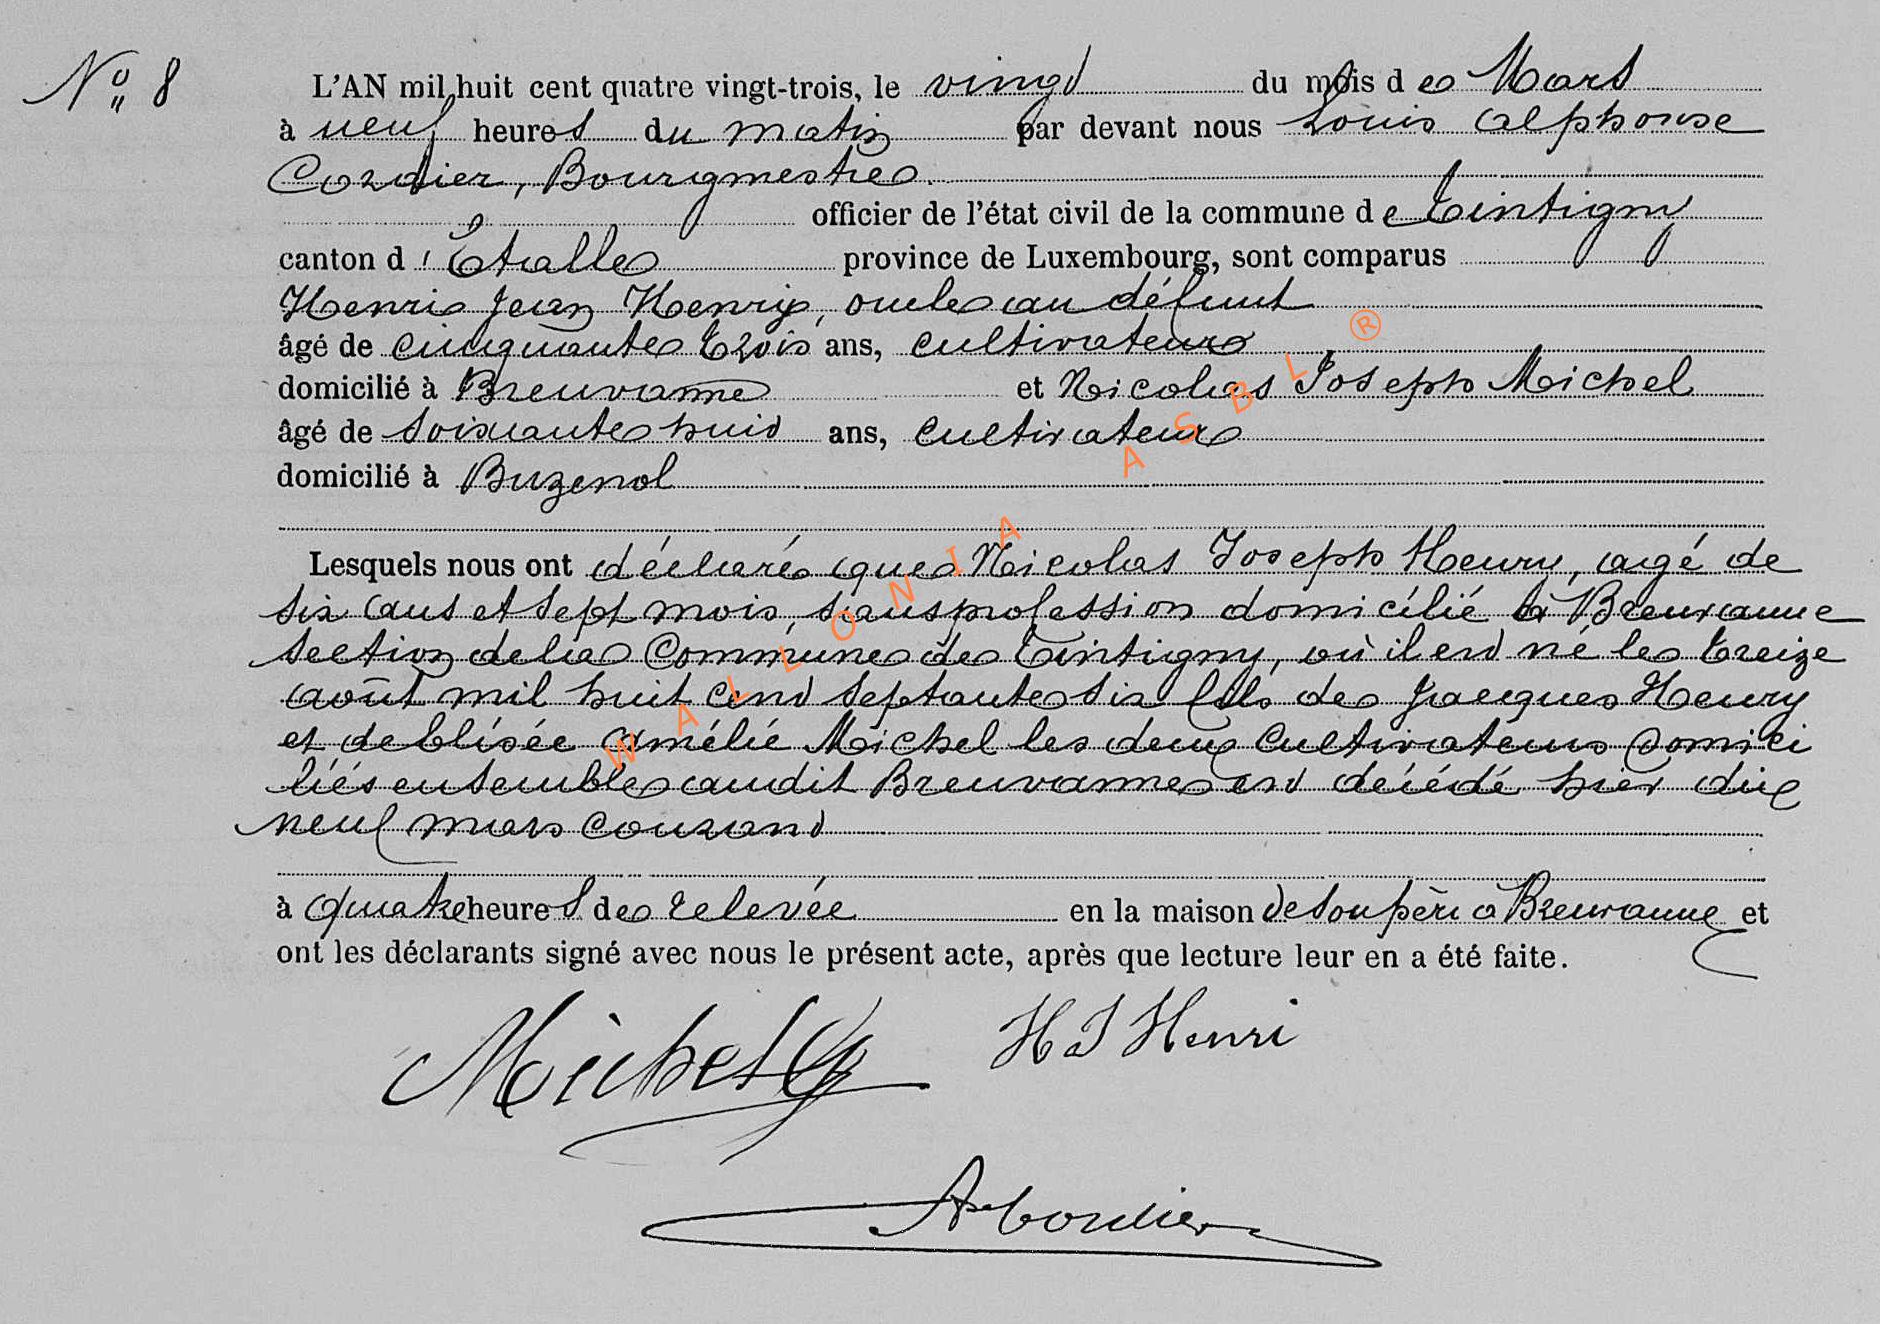 N° 8
L'AN mil huit cent quatre vingt-trois, le vingt du mois de Mars
à neuf heures du matin par devant nous Louis Alphonse
Cordier, Bourgmestre.
officier de l'état civil de la commune de Tintigny
canton d'Etalle province de Luxembourg, sont comparus
Henri Jean Henry, oncle au défunt
âgé de cinquante trois ans, cultivateur
domicilié à Breuvanne et Nicolas Joseph Michel
âgé de soixante huit ans, cultivateur
domicilié à Buzenol
Lesquels nous ont déclaré que Nicolas Joseph Henry, agé de
six ans et sept mois, sans profession domicilié à Breuvanne
section de la Commune de Tintigny, où il est né le treize
août mil huit cent septante six fils de Jacques Henry
et de Elisée Amélie Michel les deux Cultivateurs domici
liés ensemble audit Breuvanne est décédé hier dix
neuf mars courant
à quatre heures de relevée en la maison de son père à Breuvanne et
ont les déclarants signé avec nous le présent acte, après que lecture leur en a été faite.
Michel H J Henri
A Cordier
WALLONIA ASBL ®